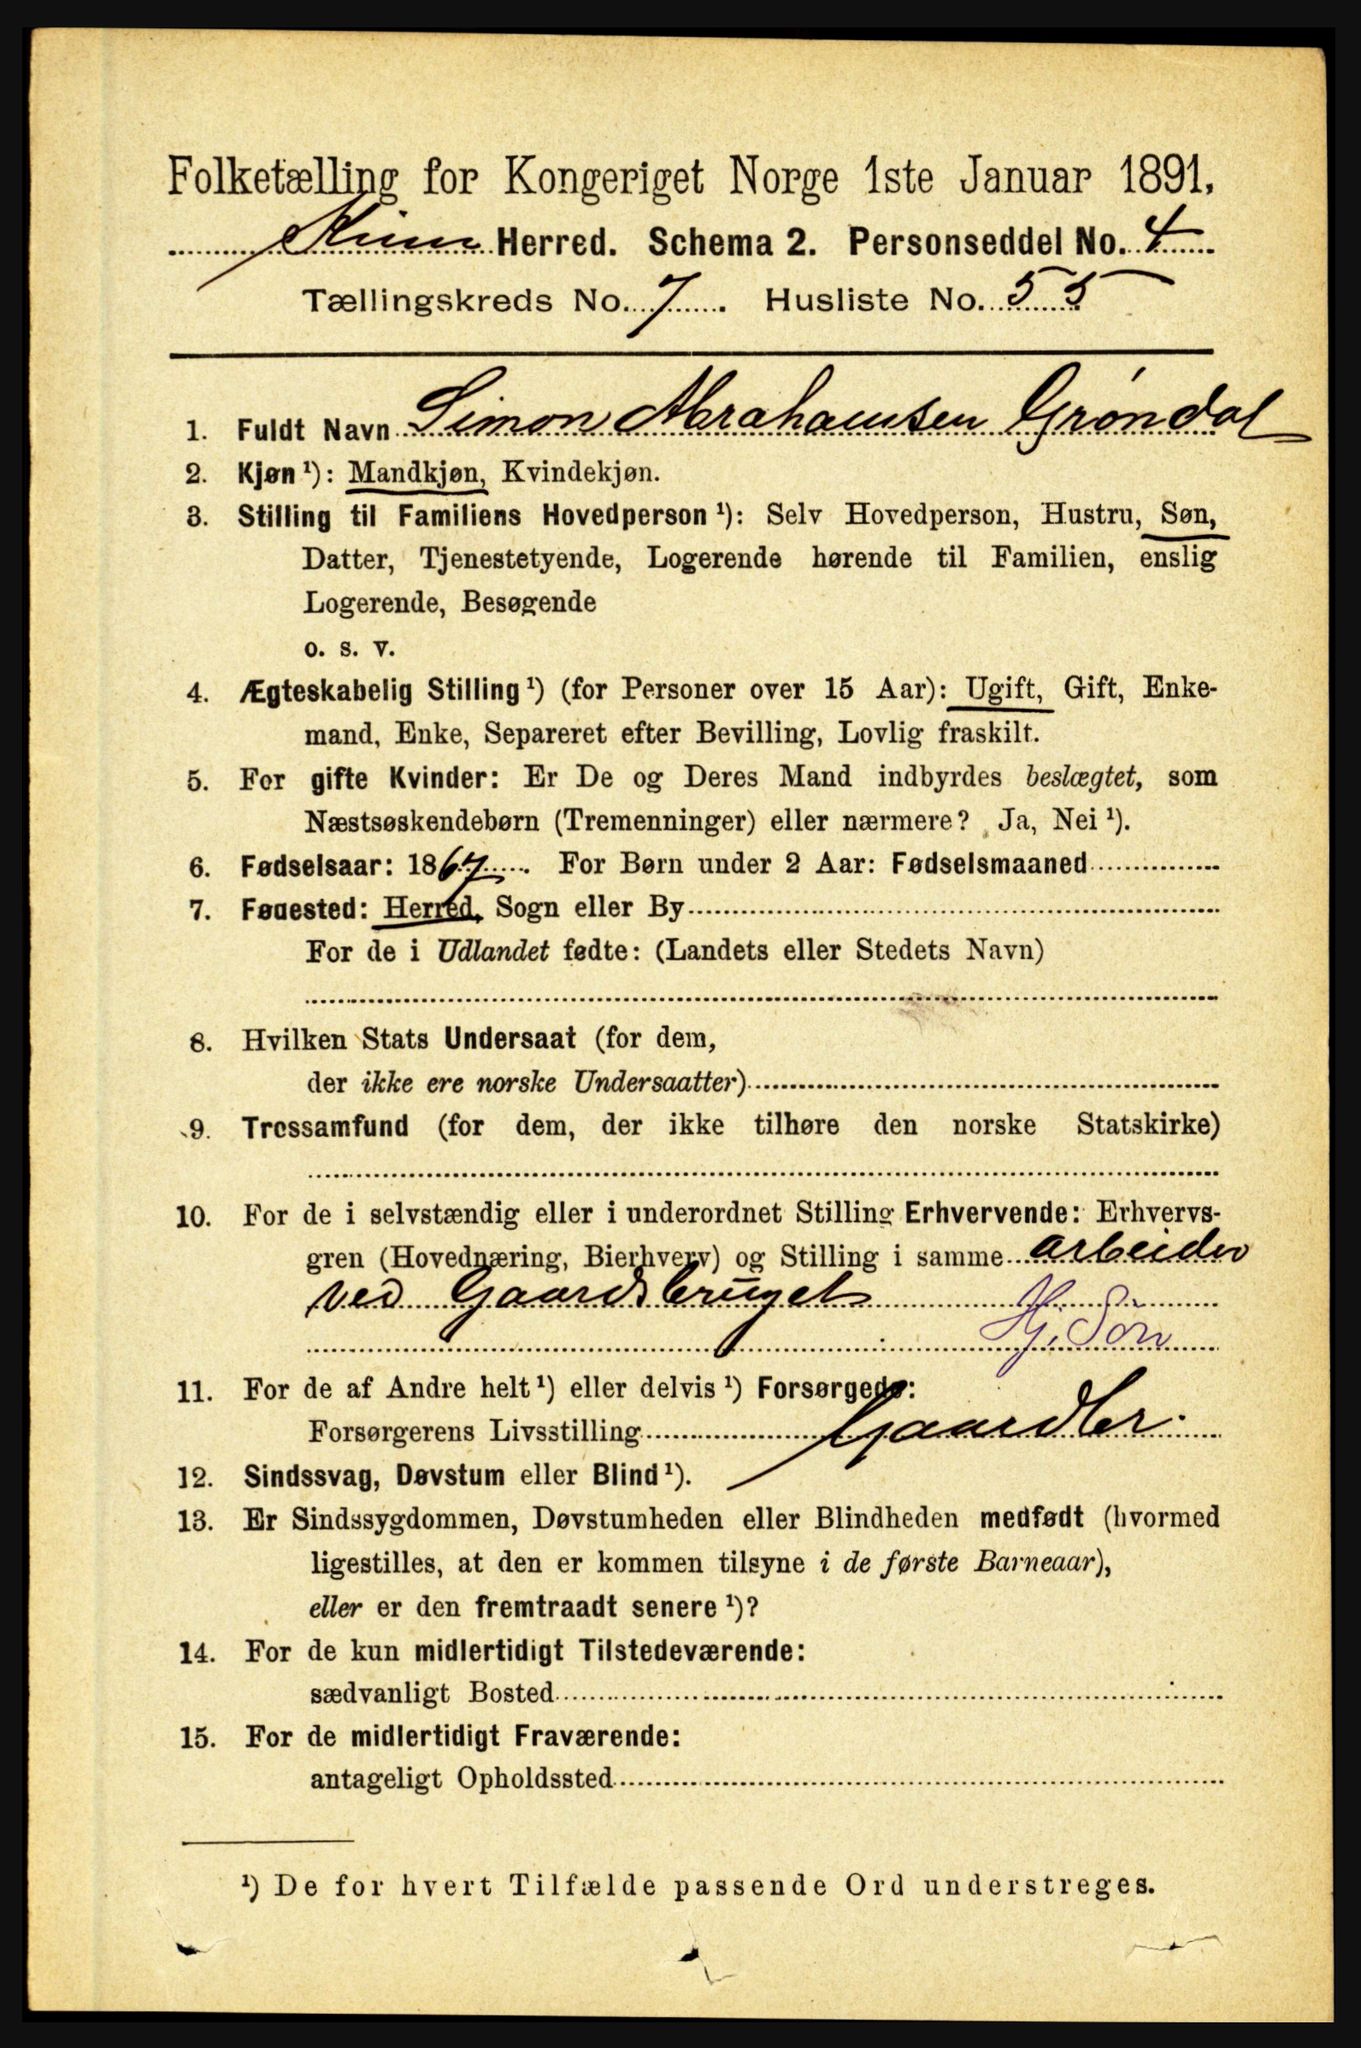 Folketælling for Kongeriget Norge 1ste Januar 1891.
Kinn Herred. Schema 2. Personseddel No. 4
Tællingskreds No. 7. Husliste No. 55
1. Fuldt Navn Simon Abrahamsen Grøndal
2. Kjøn ¹): Mandkjøn, Kvindekjøn.
3. Stilling til Familiens Hovedperson ¹): Selv Hovedperson, Hustru, Søn,
Datter, Tjenestetyende, Logerende hørende til Familien, enslig
Logerende, Besøgende
o. s. v.
4. Ægteskabelig Stilling ¹) (for Personer over 15 Aar): Ugift, Gift, Enke-
mand, Enke, Separeret efter Bevilling, Lovlig fraskilt.
5. For gifte Kvinder: Er De og Deres Mand indbyrdes beslægtet, som
Næstsøskendebørn (Tremenninger) eller nærmere? Ja, Nei ¹).
6. Fødselsaar: 1867. For Børn under 2 Aar: Fødselsmaaned
7. Føuested: Herred, Sogn eller By
For de i Udlandet fødte: (Landets eller Stedets Navn)
8. Hvilken Stats Undersaat (for dem,
der ikke ere norske Undersaatter)
9. Trossamfund (for dem, der ikke tilhøre den norske Statskirke)
10. For de i selvstændig eller i underordnet Stilling Erhvervende: Erhvervs-
gren (Hovednæring, Bierhverv) og Stilling i samme arbeider
ved Gaardsbruget
Hj. Søn
11. For de af Andre helt ¹) eller delvis ¹) Forsørgede:
Forsørgerens Livsstilling Gaardbr.
12. Sindssvag, Døvstum eller Blind ¹).
13. Er Sindssygdommen, Døvstumheden eller Blindheden medfødt (hvormed
ligestilles, at den er kommen tilsyne i de første Barneaar),
eller er den fremtraadt senere ¹)?
14. For de kun midlertidigt Tilstedeværende:
sædvanligt Bosted
15. For de midlertidigt Fraværende:
antageligt Opholdssted
¹) De for hvert Tilfælde passende Ord understreges.